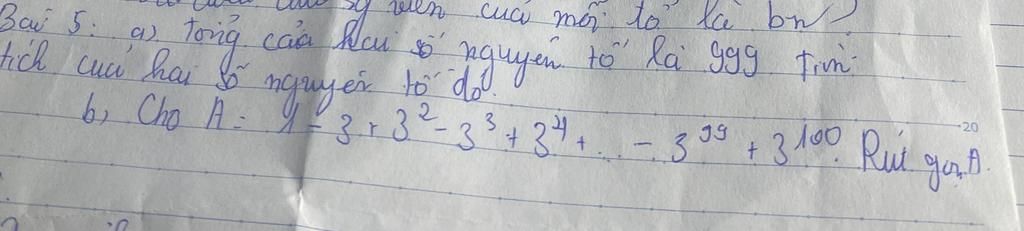 viên của mỗi tổ là bn?
Bài 5: a) Tổng của hai số nguyên tố là 999 Tìm:
tích của hai số nguyên tố đó.
b, Cho A = 1 - 3 + 3² - 3³ + 3⁴ + ... - 3⁹⁹ + 3¹⁰⁰. Rút gọn A.
20